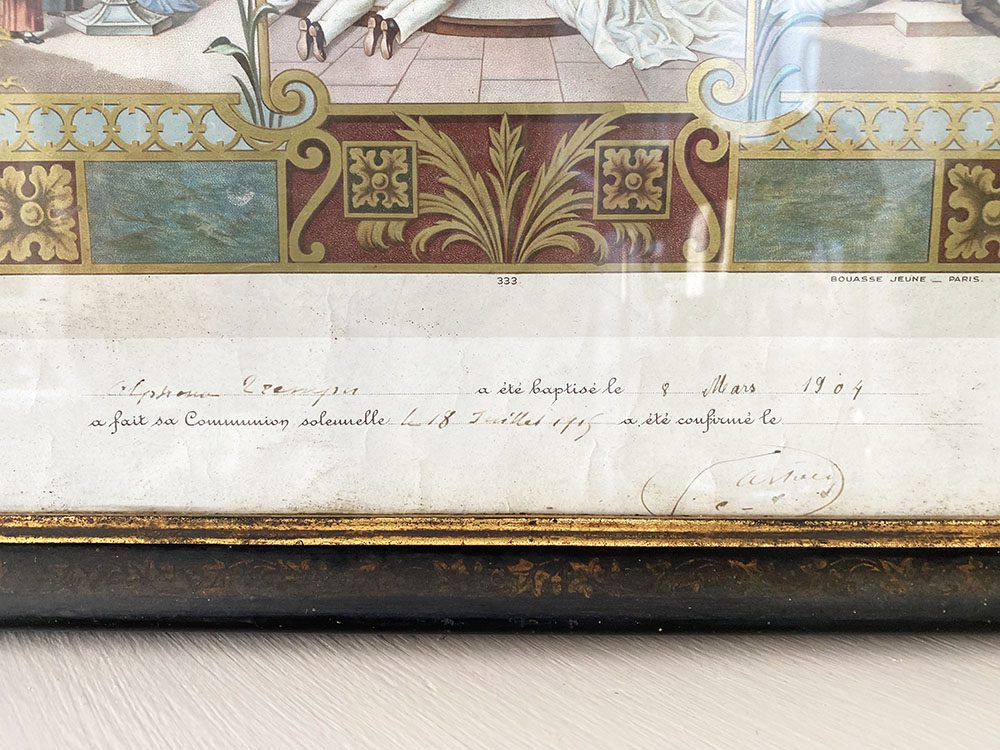 333
BOUASSE JEUNE — PARIS.
a été baptisé le 8 Mars 1904
a fait sa Communion solennelle le 18 Juillet 1915 a été confirmé le